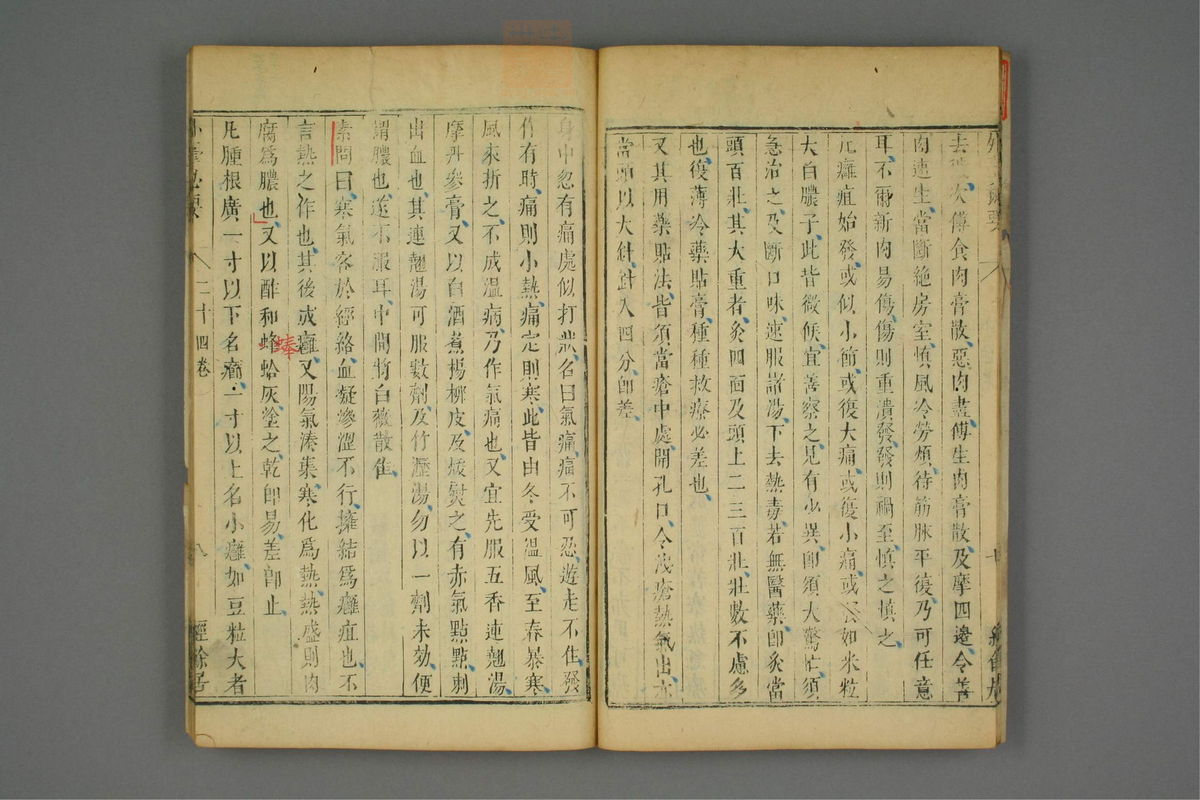 去 次傅食肉膏散惡肉盡傅生肉膏散及摩四邊令善
肉速生當斷絕房室慎風冷勞煩待筋脉平復乃可任意
耳不爾新肉易傷傷則重潰發發則禍至慎之慎之
凡癰疽始發或似小癤或復大痛或復小痛或發如米粒
大白膿子此皆微候宜善察之見有少異卽須大驚忙須
急治之及斷口味速服諸湯下去熱毒若無醫藥卽灸當
頭百壯其大重者灸四面及頭上二三百壯壯數不慮多
也復薄冷藥貼膏種種救療必差也
又其用藥貼法皆須當瘡中處開孔口令洩瘡熱氣出亦
當頭以大針針入四分卽差
身中忽有痛處似打狀名曰氣痛痛不可忍遊走不住發
作有時痛則小熱痛定則寒此皆由冬受溫風至春暴寒
風來折之不成溫病乃作氣痛也又宜先服五香連翹湯
摩丹參膏又以白酒煮楊柳皮及煖熨之有赤氣點點刺
出血也其連翹湯可服數劑及竹瀝湯勿以一劑未効便
謂膿也遂不服耳中間將白薇散佳
素問曰寒氣客於經絡血凝滲澀不行擁結爲癰疽也不
言熱之作也其後成癰又陽氣湊集寒化爲熱熱盛則肉
腐爲膿也又以酢和蜂蛤灰塗之乾卽易差卽止
蚌
凡腫根廣一寸以下名癤一寸以上名小癰如豆粒大者
外臺祕要
二十四卷
八
經餘居